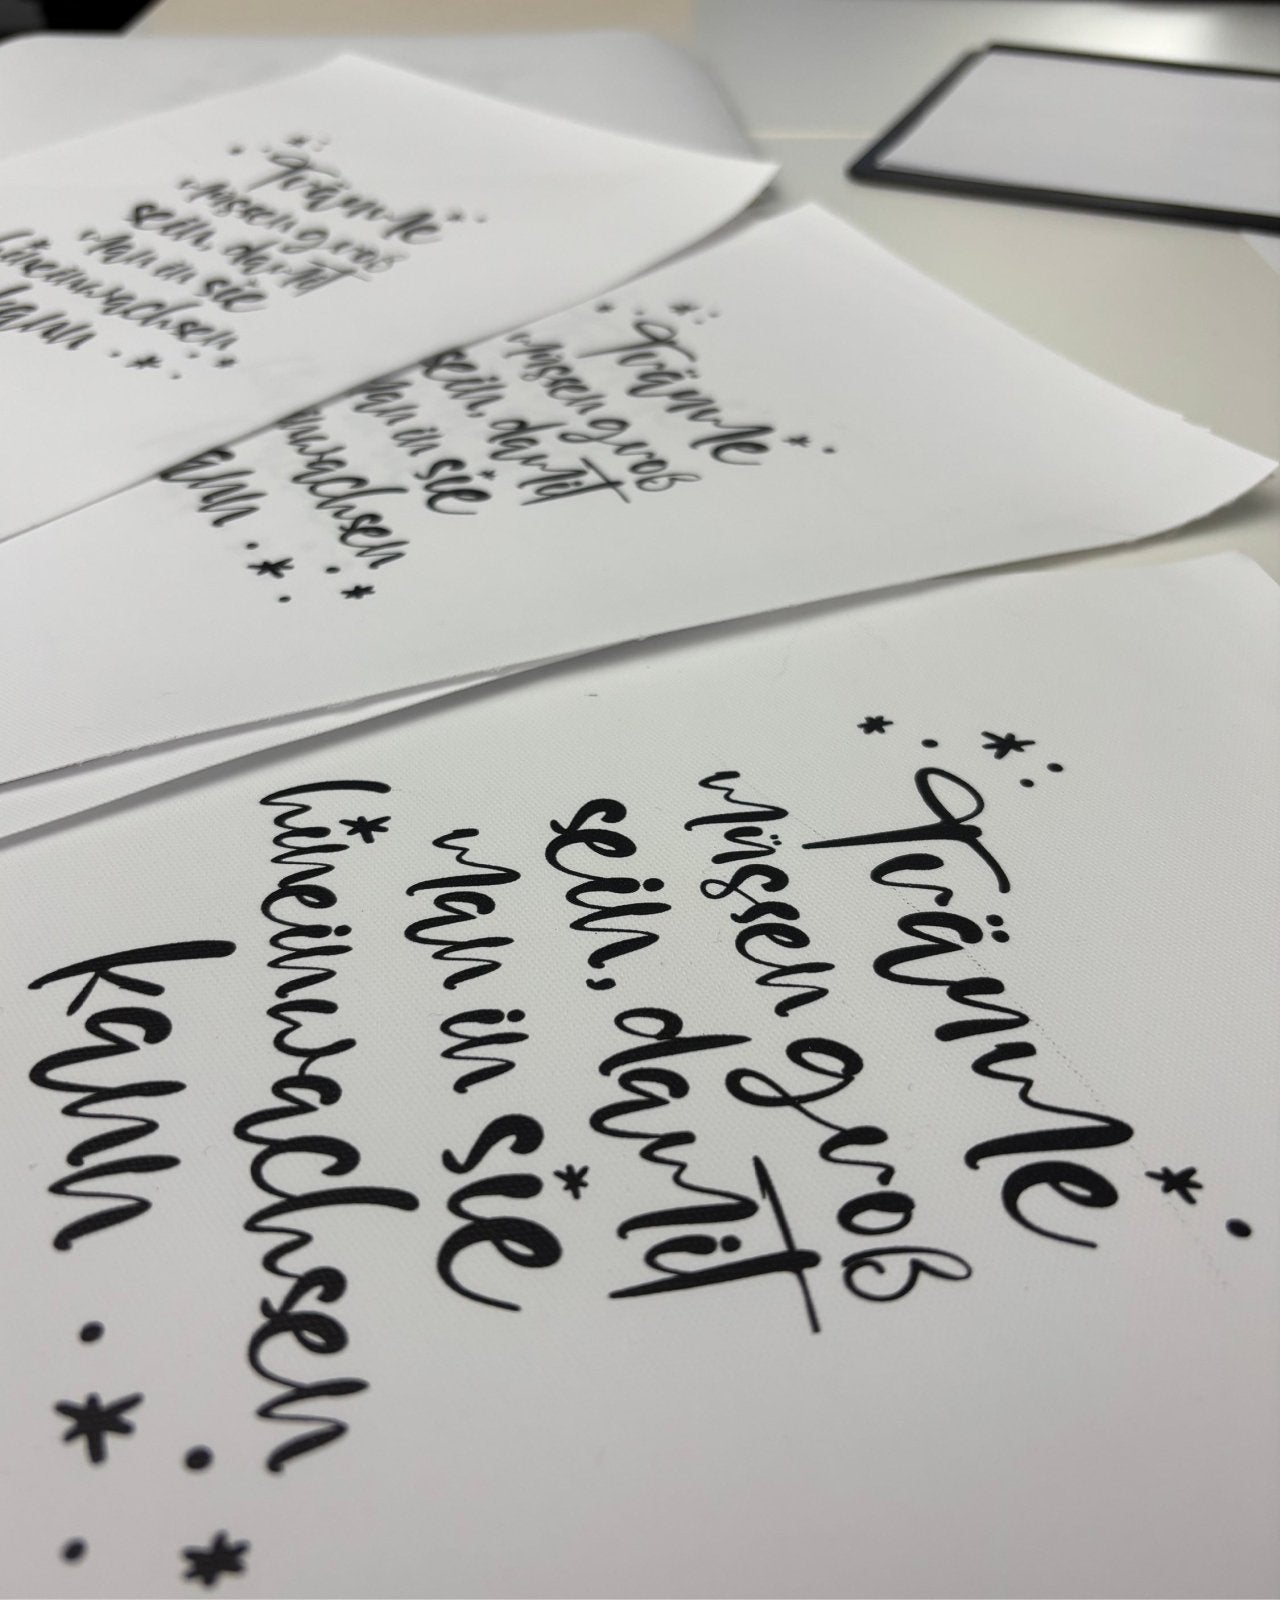 Träume
müssen groß
sein, damit
man in sie
hineinwachsen
kann
Träume
müssen groß
sein, damit
man in sie
nwachsen
ann
Träume
müssen groß
sein, damit
man in sie
hineinwachsen
kann